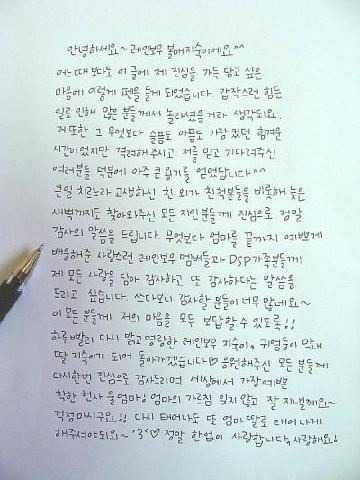 안녕하세요~ 레인보우 블매지숙이에요^^
어느때보다도 이 글에 제 진심을 가득 담고 싶은
마음에 이렇게 펜을 들게 되었습니다. 갑작스런 힘든
일로 인해 많은 분들께서 놀라셨을거라 생각되요.
저또한 그 무엇보다 슬픔도 아픔도 가장 컸던 힘겨운
시간이었지만 격려해주시고 저를 믿고 기다려주신
여러분들 덕분에 아주 큰 힘을 얻었답니다^^
큰일 치르느라 고생하신 친 외가 친척분들을 비롯해 늦은
새벽까지도 찾아와주신 모든 지인분들께 진심으로 정말
감사의 말씀을 드립니다. 무엇보다 엄마를 끝까지 예쁘게
배웅해준 사랑스런 레인보우 멤버들과 Dsp가족분들께
제 모든 사랑을 담아 감사하고 또 감사하다는 말씀을
드리고 싶습니다. 쓰다보니 감사할 분들이 너무 많네요~
이 모든 분들께 저의 마음을 모두 보답할 수 있도록!!
하루빨리 다시 밝고 명랑한 레인보우 지숙이♡ 귀염둥이 막내
딸 지숙이가 되어 돌아가겠습니다♡ 응원해주신 모든 분들께
다시한번 진심으로 감사드리며 세상에서 가장 예쁜
착한 천사 울엄마! 엄마의 가르침 잊지않고 잘 지낼께요~
걱정마시구요!! 다시 태어나도 또 엄마 딸로 태어나게
해주셔야되요~ '3'♡ 정말 한없이 사랑합니다, 사랑해요!